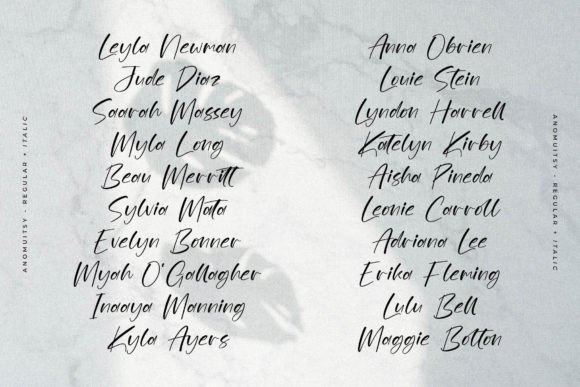 Leyla Newman
Jude Diaz
Saarah Massey
Myla Long
Beau Merritt
Sylvia Mata
Evelyn Bonner
Myah O'Gallagher
Inaaya Manning
Kyla Ayers
Anna Obrien
Louie Stein
Lyndon Harrell
Katelyn Kirby
Aisha Pineda
Leonie Carroll
Adriana Lee
Erika Fleming
Lulu Bell
Maggie Bolton
ANOMUITSY - REGULAR + ITALIC
ANOMUITSY - REGULAR + ITALIC